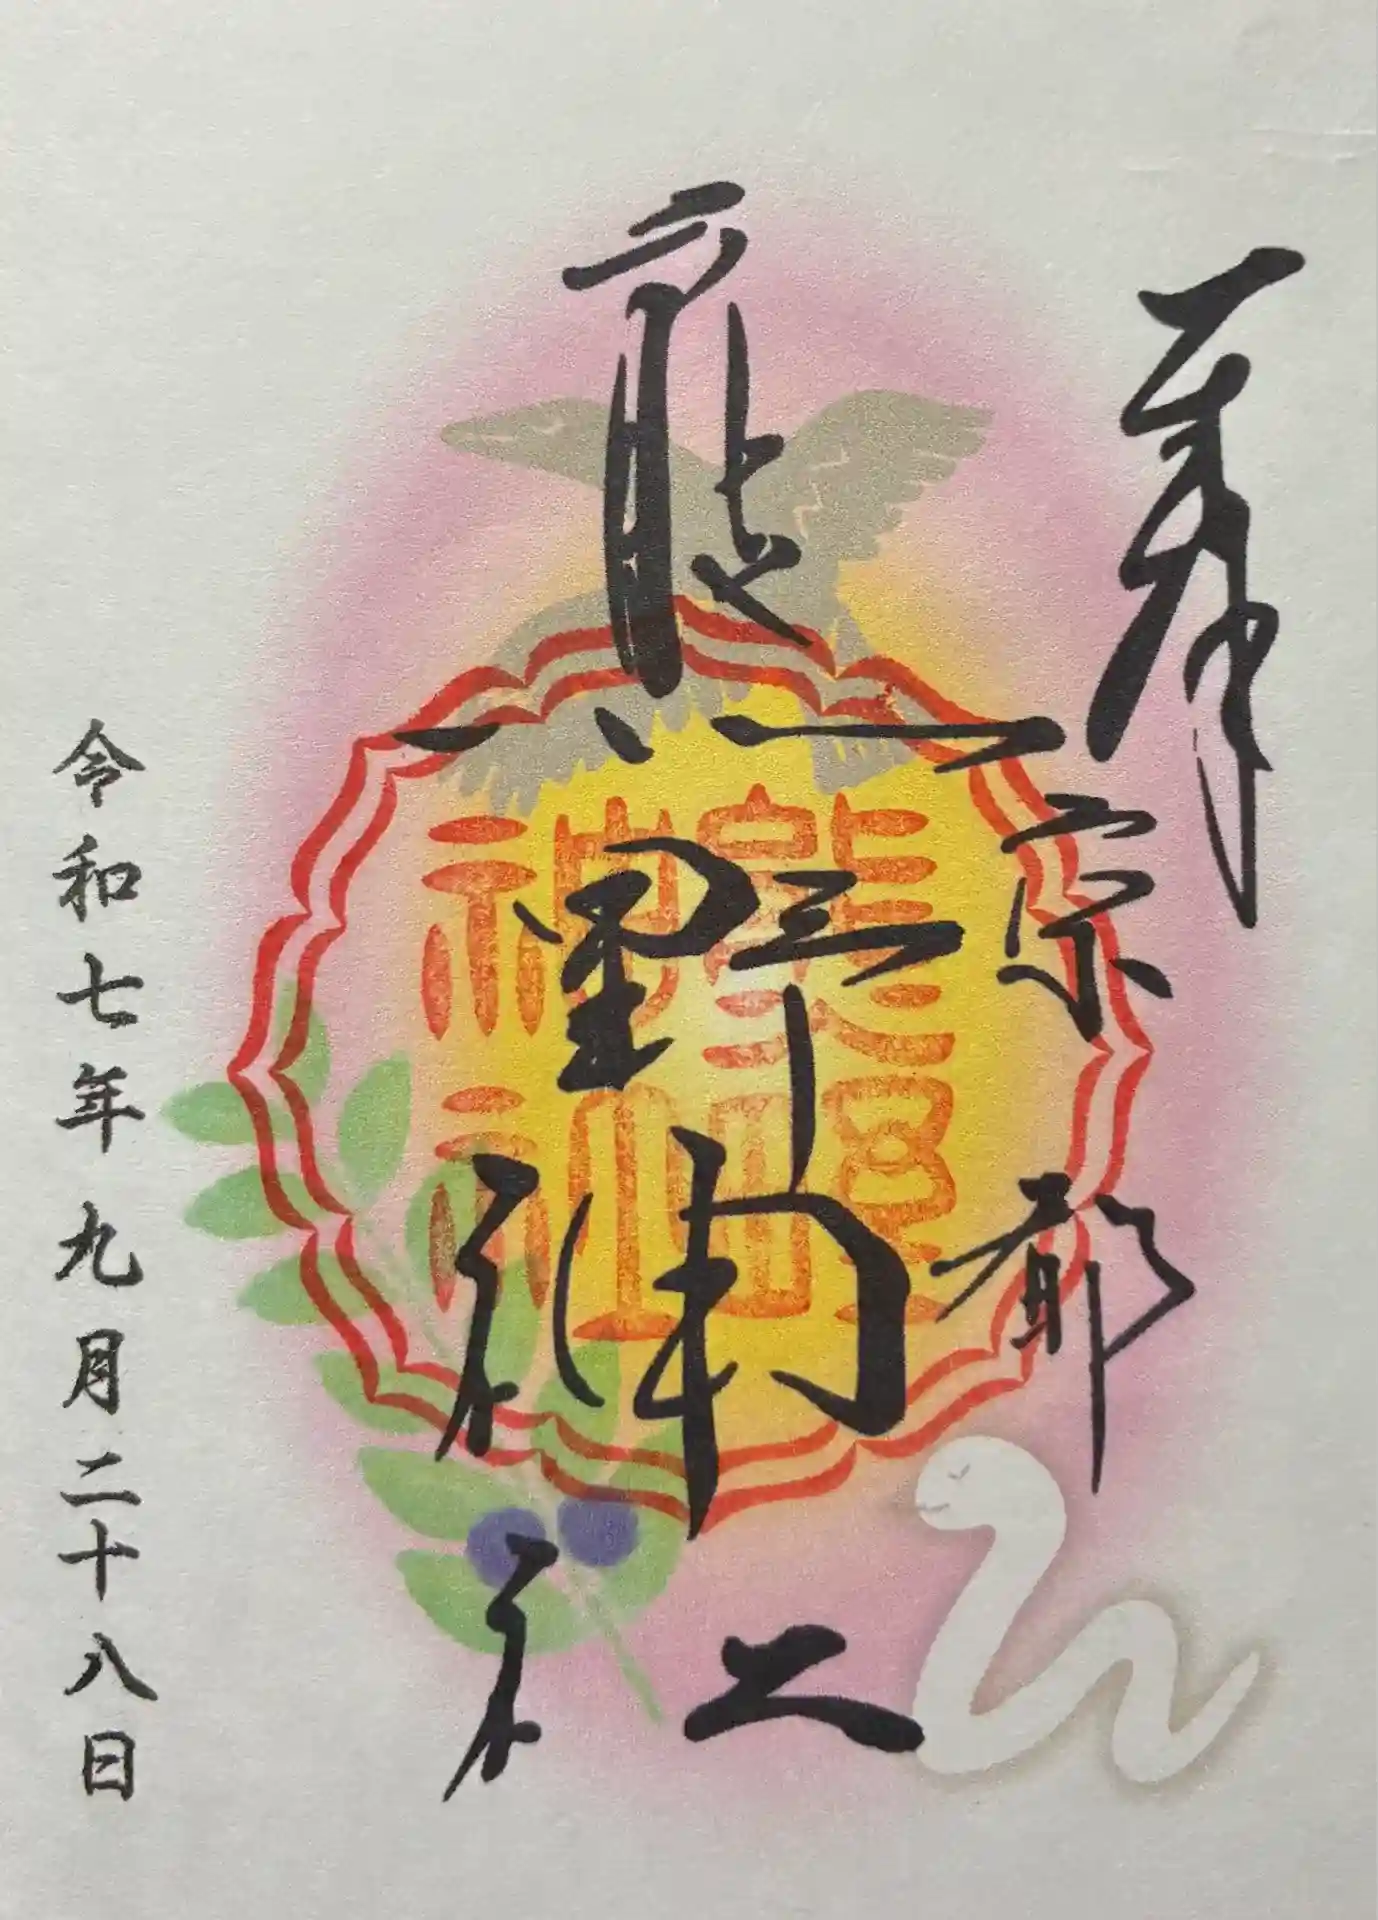 奉拝
京都
熊野神社
熊野神社
令和七年九月二十八日